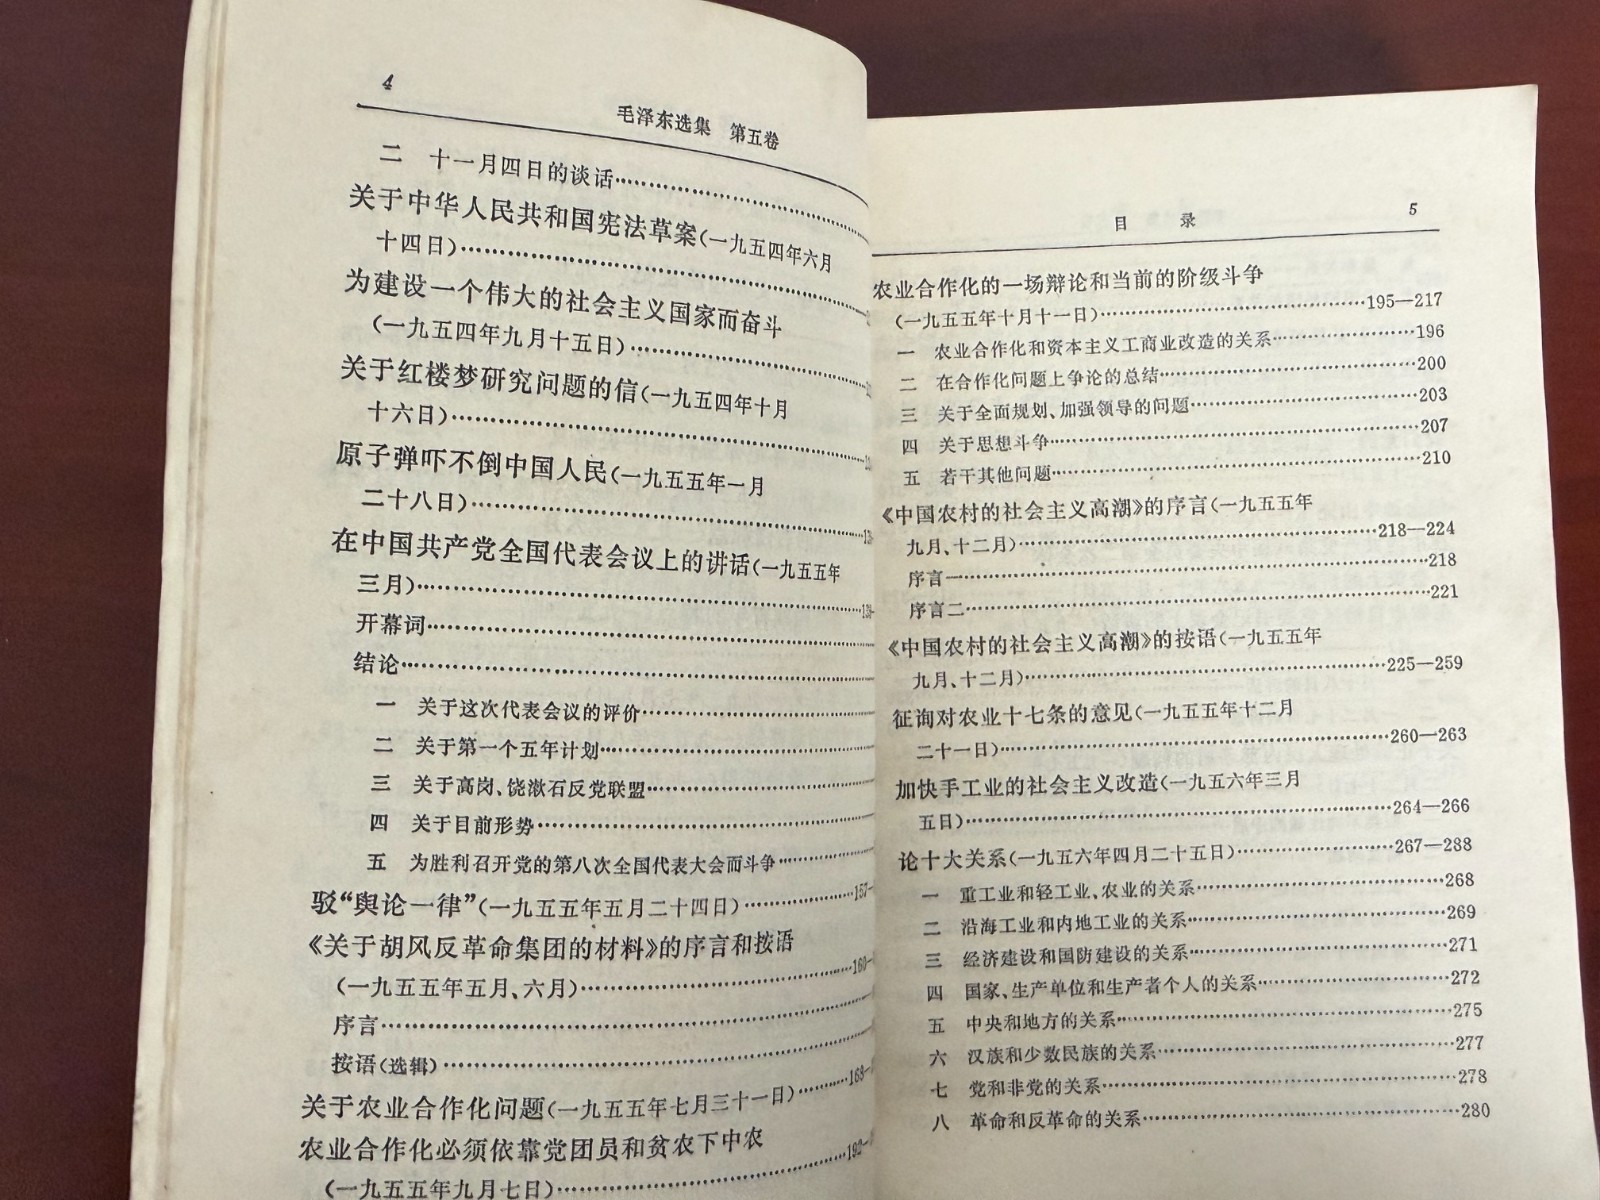 4
毛泽东选集　第五卷
二　十一月四日的谈话
关于中华人民共和国宪法草案(一九五四年六月
十四日)
为建设一个伟大的社会主义国家而奋斗
(一九五四年九月十五日)
关于红楼梦研究问题的信(一九五四年十月
十六日)
原子弹吓不倒中国人民(一九五五年一月
二十八日)
在中国共产党全国代表会议上的讲话(一九五五年
三月)
开幕词
结论
一　关于这次代表会议的评价
二　关于第一个五年计划
三　关于高岗、饶漱石反党联盟
四　关于目前形势
五　为胜利召开党的第八次全国代表大会而斗争
驳“舆论一律”(一九五五年五月二十四日)……157—
《关于胡风反革命集团的材料》的序言和按语
(一九五五年五月、六月)……160—
序言
按语(选辑)
关于农业合作化问题(一九五五年七月三十一日)……168—
农业合作化必须依靠党团员和贫农下中农
(一九五五年九月七日)……192—
目　录　5
农业合作化的一场辩论和当前的阶级斗争
(一九五五年十月十一日)……195—217
一　农业合作化和资本主义工商业改造的关系……196
二　在合作化问题上争论的总结……200
三　关于全面规划、加强领导的问题……203
四　关于思想斗争……207
五　若干其他问题……210
《中国农村的社会主义高潮》的序言(一九五五年
九月、十二月)……218—224
序言一……218
序言二……221
《中国农村的社会主义高潮》的按语(一九五五年
九月、十二月)……225—259
征询对农业十七条的意见(一九五五年十二月
二十一日)……260—263
加快手工业的社会主义改造(一九五六年三月
五日)……264—266
论十大关系(一九五六年四月二十五日)……267—288
一　重工业和轻工业、农业的关系……268
二　沿海工业和内地工业的关系……269
三　经济建设和国防建设的关系……271
四　国家、生产单位和生产者个人的关系……272
五　中央和地方的关系……275
六　汉族和少数民族的关系……277
七　党和非党的关系……278
八　革命和反革命的关系……280